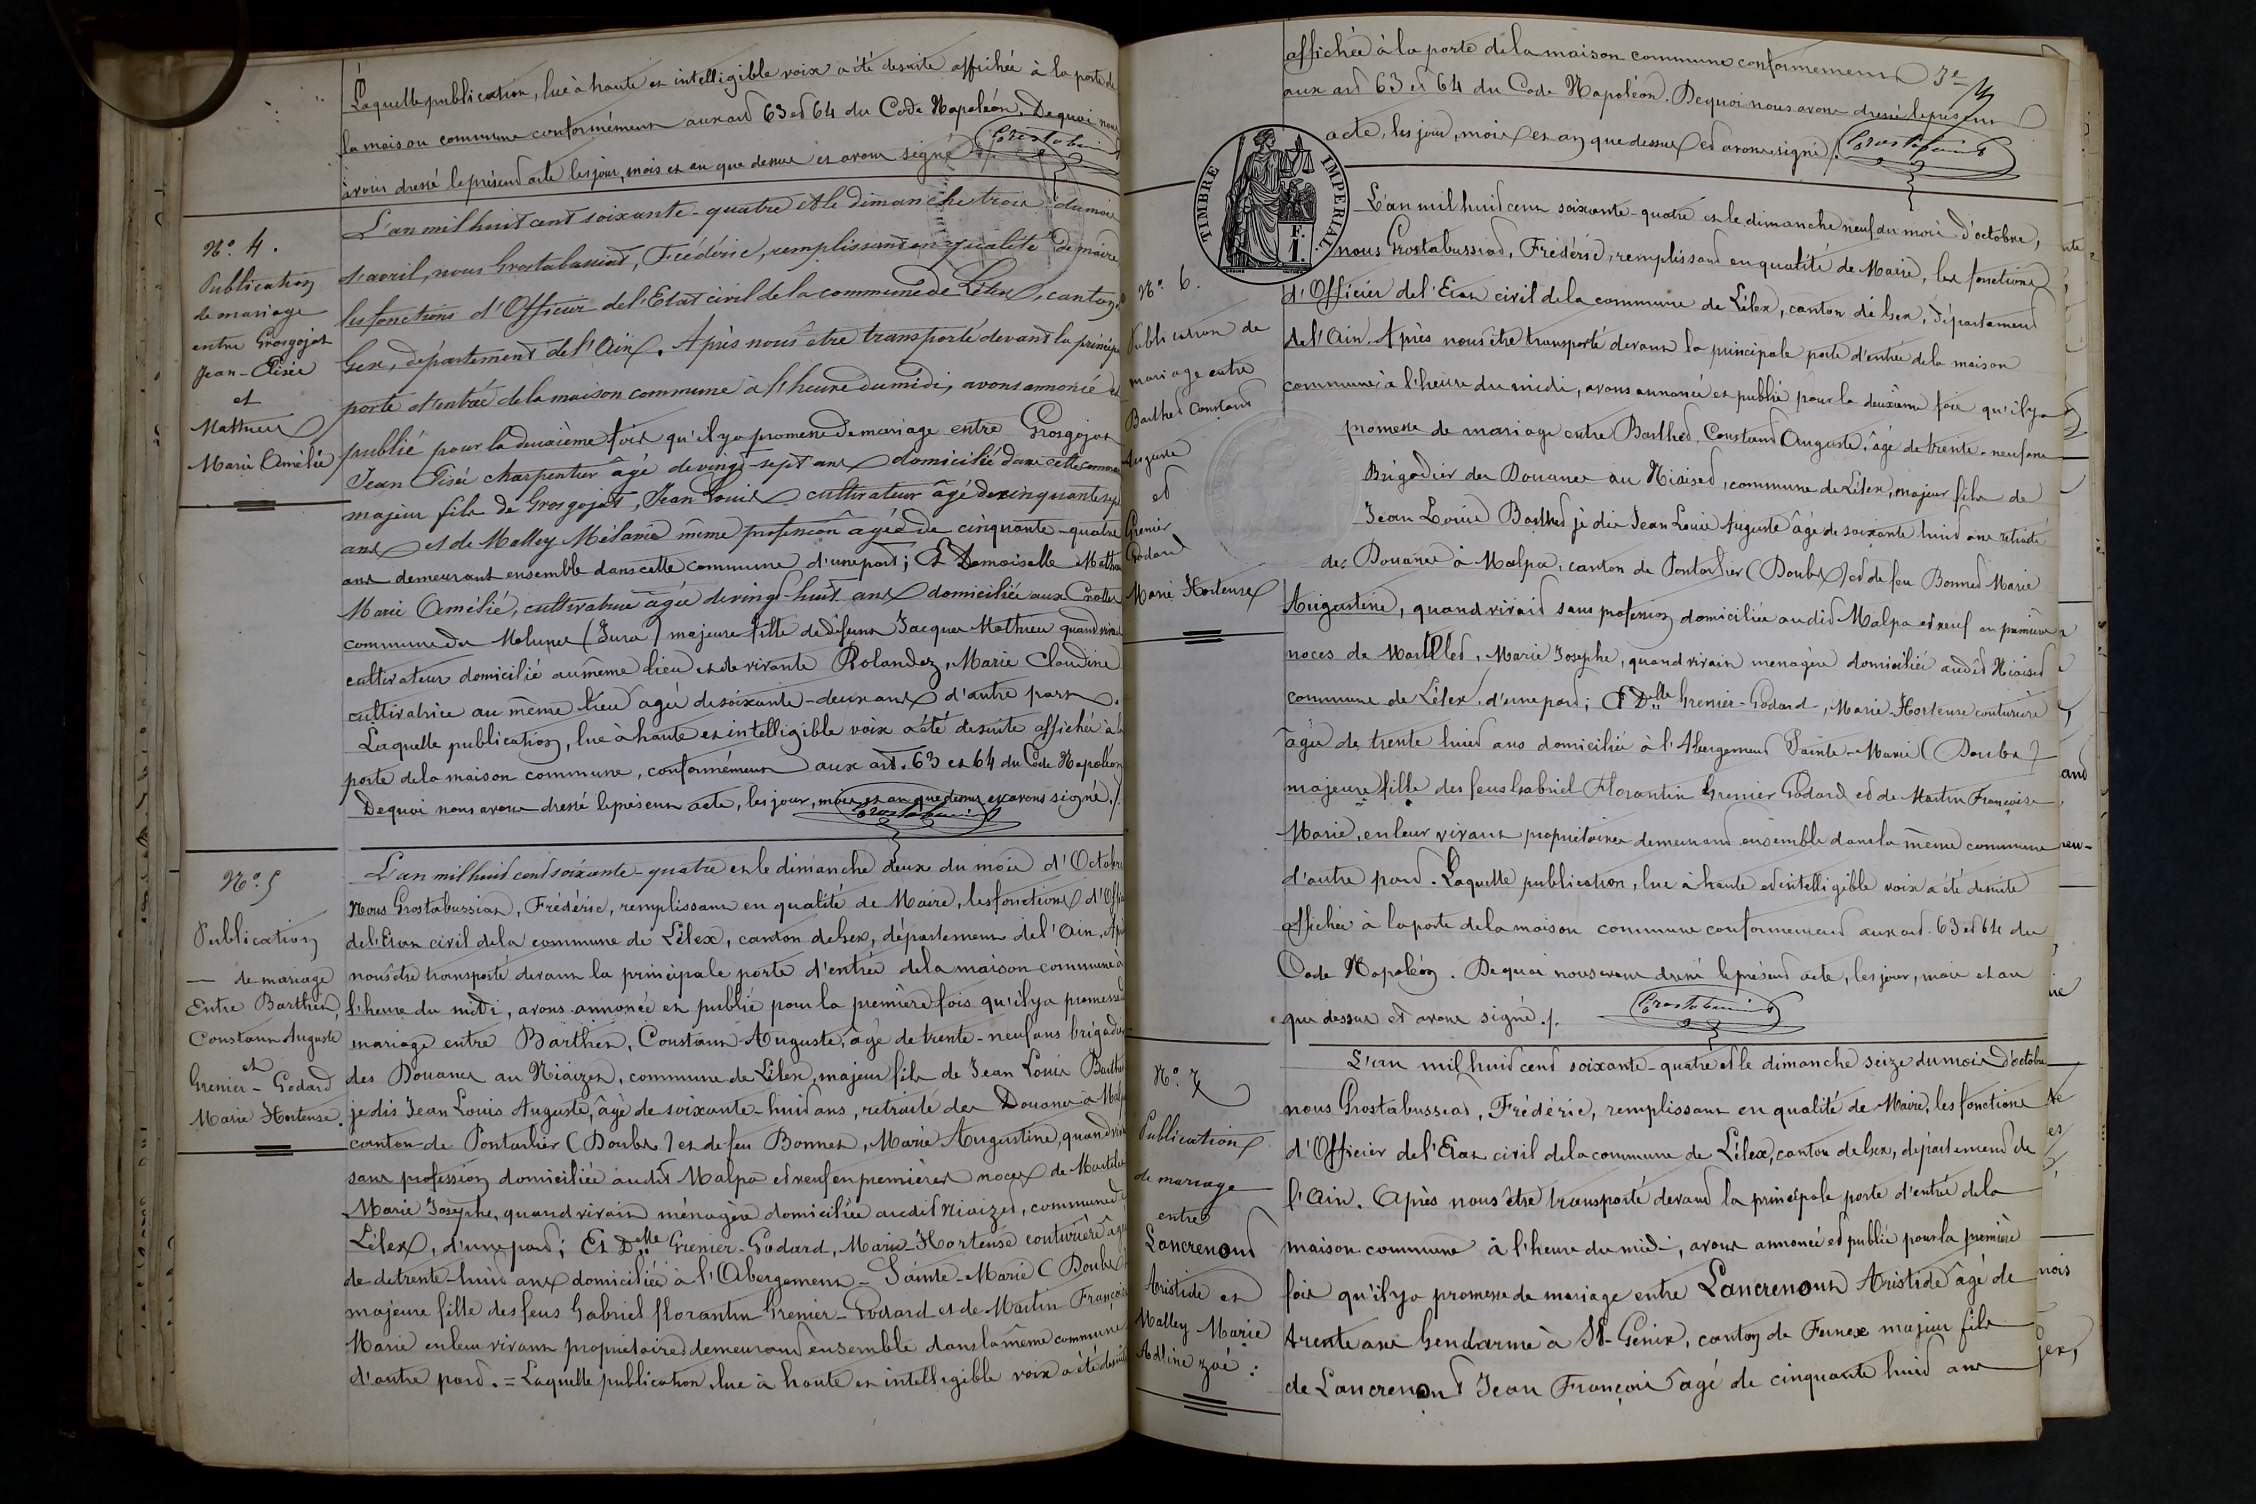 Laquelle publication, lue à haute et intelligible voix a été desuite affichée à la porte de
la maison commune conformément aux art 63 et 64 du Code Napoléon. Dequoi nous
avons dressé le présent acte les jour, mois et an que dessus et avons signé ./.
Grostabussiat
N°. 4.
Publication
de mariage
entre Grosgojat
Jean-Elisée
et
Mathieu
Marie Amélie
L'an mil huit cent soixante-quatre et le dimanche trois du mois
d'avril, nous Grostabussiat, Frédéric, remplissant en qualité de maire
les fonctions d'Officier de l'Etat civil de la commune de Lélex, canton de
Gex, département de l'Ain. Après nous être transporté devant la principale
porte d'entrée de la maison commune à l'heure du midi, avons annoncé et
publié pour la deuxième fois qu'il y a promesse de mariage entre Grosgojat
Jean Elisée charpentier âgé de vingt-sept ans domicilié dans cette commune
majeur fils de Grosgojat, Jean Louis cultivateur âgé de cinquante sept
ans et de Malley Mélanie même profession âgée de cinquante-quatre
ans demeurant ensemble dans cette commune d'une part; Et Demoiselle Mathieu
Marie Amélie, cultivatrice âgée de vingt-huit ans domiciliée aux
commune des Molunes (Jura) majeure fille de défunt Jacques Mathieu quand vivait
cultivateur domicilié au même lieu et de vivante Rolandez, Marie Claudine
cultivatrice au même lieu âgée de soixante-deux ans d'autre part.
Laquelle publication, lue à haute et intelligible voix a été desuite affichée à la
porte de la maison commune, conformément aux art. 63 et 64 du Code Napoléon
Dequoi nous avons dressé le présent acte, les jour, mois et an que dessus et avons signé./.
Grostabussiat
N°. 5
Publication
— de mariage
Entre Barthet,
Constant Auguste
et
Grenier-Godard
Marie Hortense.
L'an mil huit cent soixante-quatre et le dimanche deux du mois d'Octobre
Nous Grostabussiat, Frédéric, remplissant en qualité de Maire, les fonctions d'Officier
de l'Etat civil de la commune de Lélex, canton de Gex, département de l'Ain. Après
nous être transporté devant la principale porte d'entrée de la maison commune à
l'heure du midi, avons annoncé et publié pour la première fois qu'il y a promesse de
mariage entre Barthet, Constant Auguste, âgé de trente-neuf ans brigadier
des Douanes au Niaizet, commune de Lélex, majeur fils de Jean Louis Barthet
je dis Jean Louis Auguste, âgé de soixante-huit ans, retraité des Douanes à Malpa
canton de Pontarlier (Doubs) et de feu Bonnet, Marie Augustine, quand vivait
sans profession domiciliée audit Malpa et veuf en premières noces de
Marie Josephe, quand vivait ménagère domiciliée audit Niaizet, commune de
Lélex, d'une part; Et Dlle Grenier-Godard, Marie-Hortense couturière âgée
de de trente-huit ans domiciliée à l'Abergement-Sainte-Marie (Doubs)
majeure fille des feus Gabriel florantin Grenier-Godard et de Martin Françoise
Marie en leur vivant propriétaires demeurant ensemble dans la même commune
d'autre part.= Laquelle publication, lue à haute et intelligible voix a été desuite
affichée à la porte de la maison commune conformément
aux art 63 et 64 du Code Napoléon. Dequoi nous avons dressé le présent
acte, les jour, mois et an que dessus et avons signé ./.
Grostabussiat
TIMBRE IMPERIAL.
F.
1.
N°. 6.
Publication de
mariage entre
Barthet Constant
Auguste
et
Grenier
Godard
Marie Hortense
L'an mil huit cent soixante-quatre et le dimanche neuf du mois d'octobre,
nous Grostabussiat, Frédéric, remplissant en qualité de Maire, les fonctions
d'Officier de l'Etat civil de la commune de Lélex, canton de Gex, département
de l'Ain. Après nous être transporté devant la principale porte d'entrée de la maison
commune, à l'heure du midi, avons annoncé et publié pour la deuxième fois qu'il y a
promesse de mariage entre Barthet, Constant Auguste, âgé de trente-neuf ans
Brigadier des Douanes au Niaiset, commune de Lélex, majeur fils de
Jean Louis Barthet je dis Jean Louis Auguste âgé de soixante huit ans retraité
des Douanes à Malpa, canton de Pontarlier (Doubs) et de feu Bonnet Marie
Augustine, quand vivait sans profession domiciliée audit Malpa et veuf en premières
noces de, Marie Josephe, quand vivait ménagère domiciliée audit Niaiset
commune de Lélex, d'une part; Et Dlle Grenier-Godard, Marie-Hortense couturière
âgée de trente huit ans domiciliée à l'Abergement Sainte-Marie (Doubs)
majeure fille des feus Gabriel Florantin Grenier Godard et de Martin Françoise
Marie, en leur vivant propriétaires demeurant ensemble dans la même commune
d'autre part. Laquelle publication, lue à haute et intelligible voix a été desuite
affichée à la porte de la maison commune conformément aux art. 63 et 64 du
Code Napoléon. Dequoi nous avons dressé le présent acte, les jour, mois et an
que dessus et avons signé./.
Grostabussiat
N°. 7
Publication
de mariage
entre
Lancrenont
Aristide et
Malley Marie
Adline zoé :
L'an mil huit cent soixante-quatre et le dimanche seize du mois d'octobre
nous Grostabussiat, Frédéric, remplissant en qualité de Maire, les fonctions
d'Officier de l'Etat civil de la commune de Lélex, canton de Gex, département de
l'Ain. Après nous être transporté devant la principale porte d'entrée de la
maison commune à l'heure du midi, avons annoncé et publié pour la première
fois qu'il y a promesse de mariage entre Lancrenont Aristide âgé de
trente ans Gendarme à St-Genix, canton de Fernex majeur fils
de Lancrenont Jean François âgé de cinquante huit ans